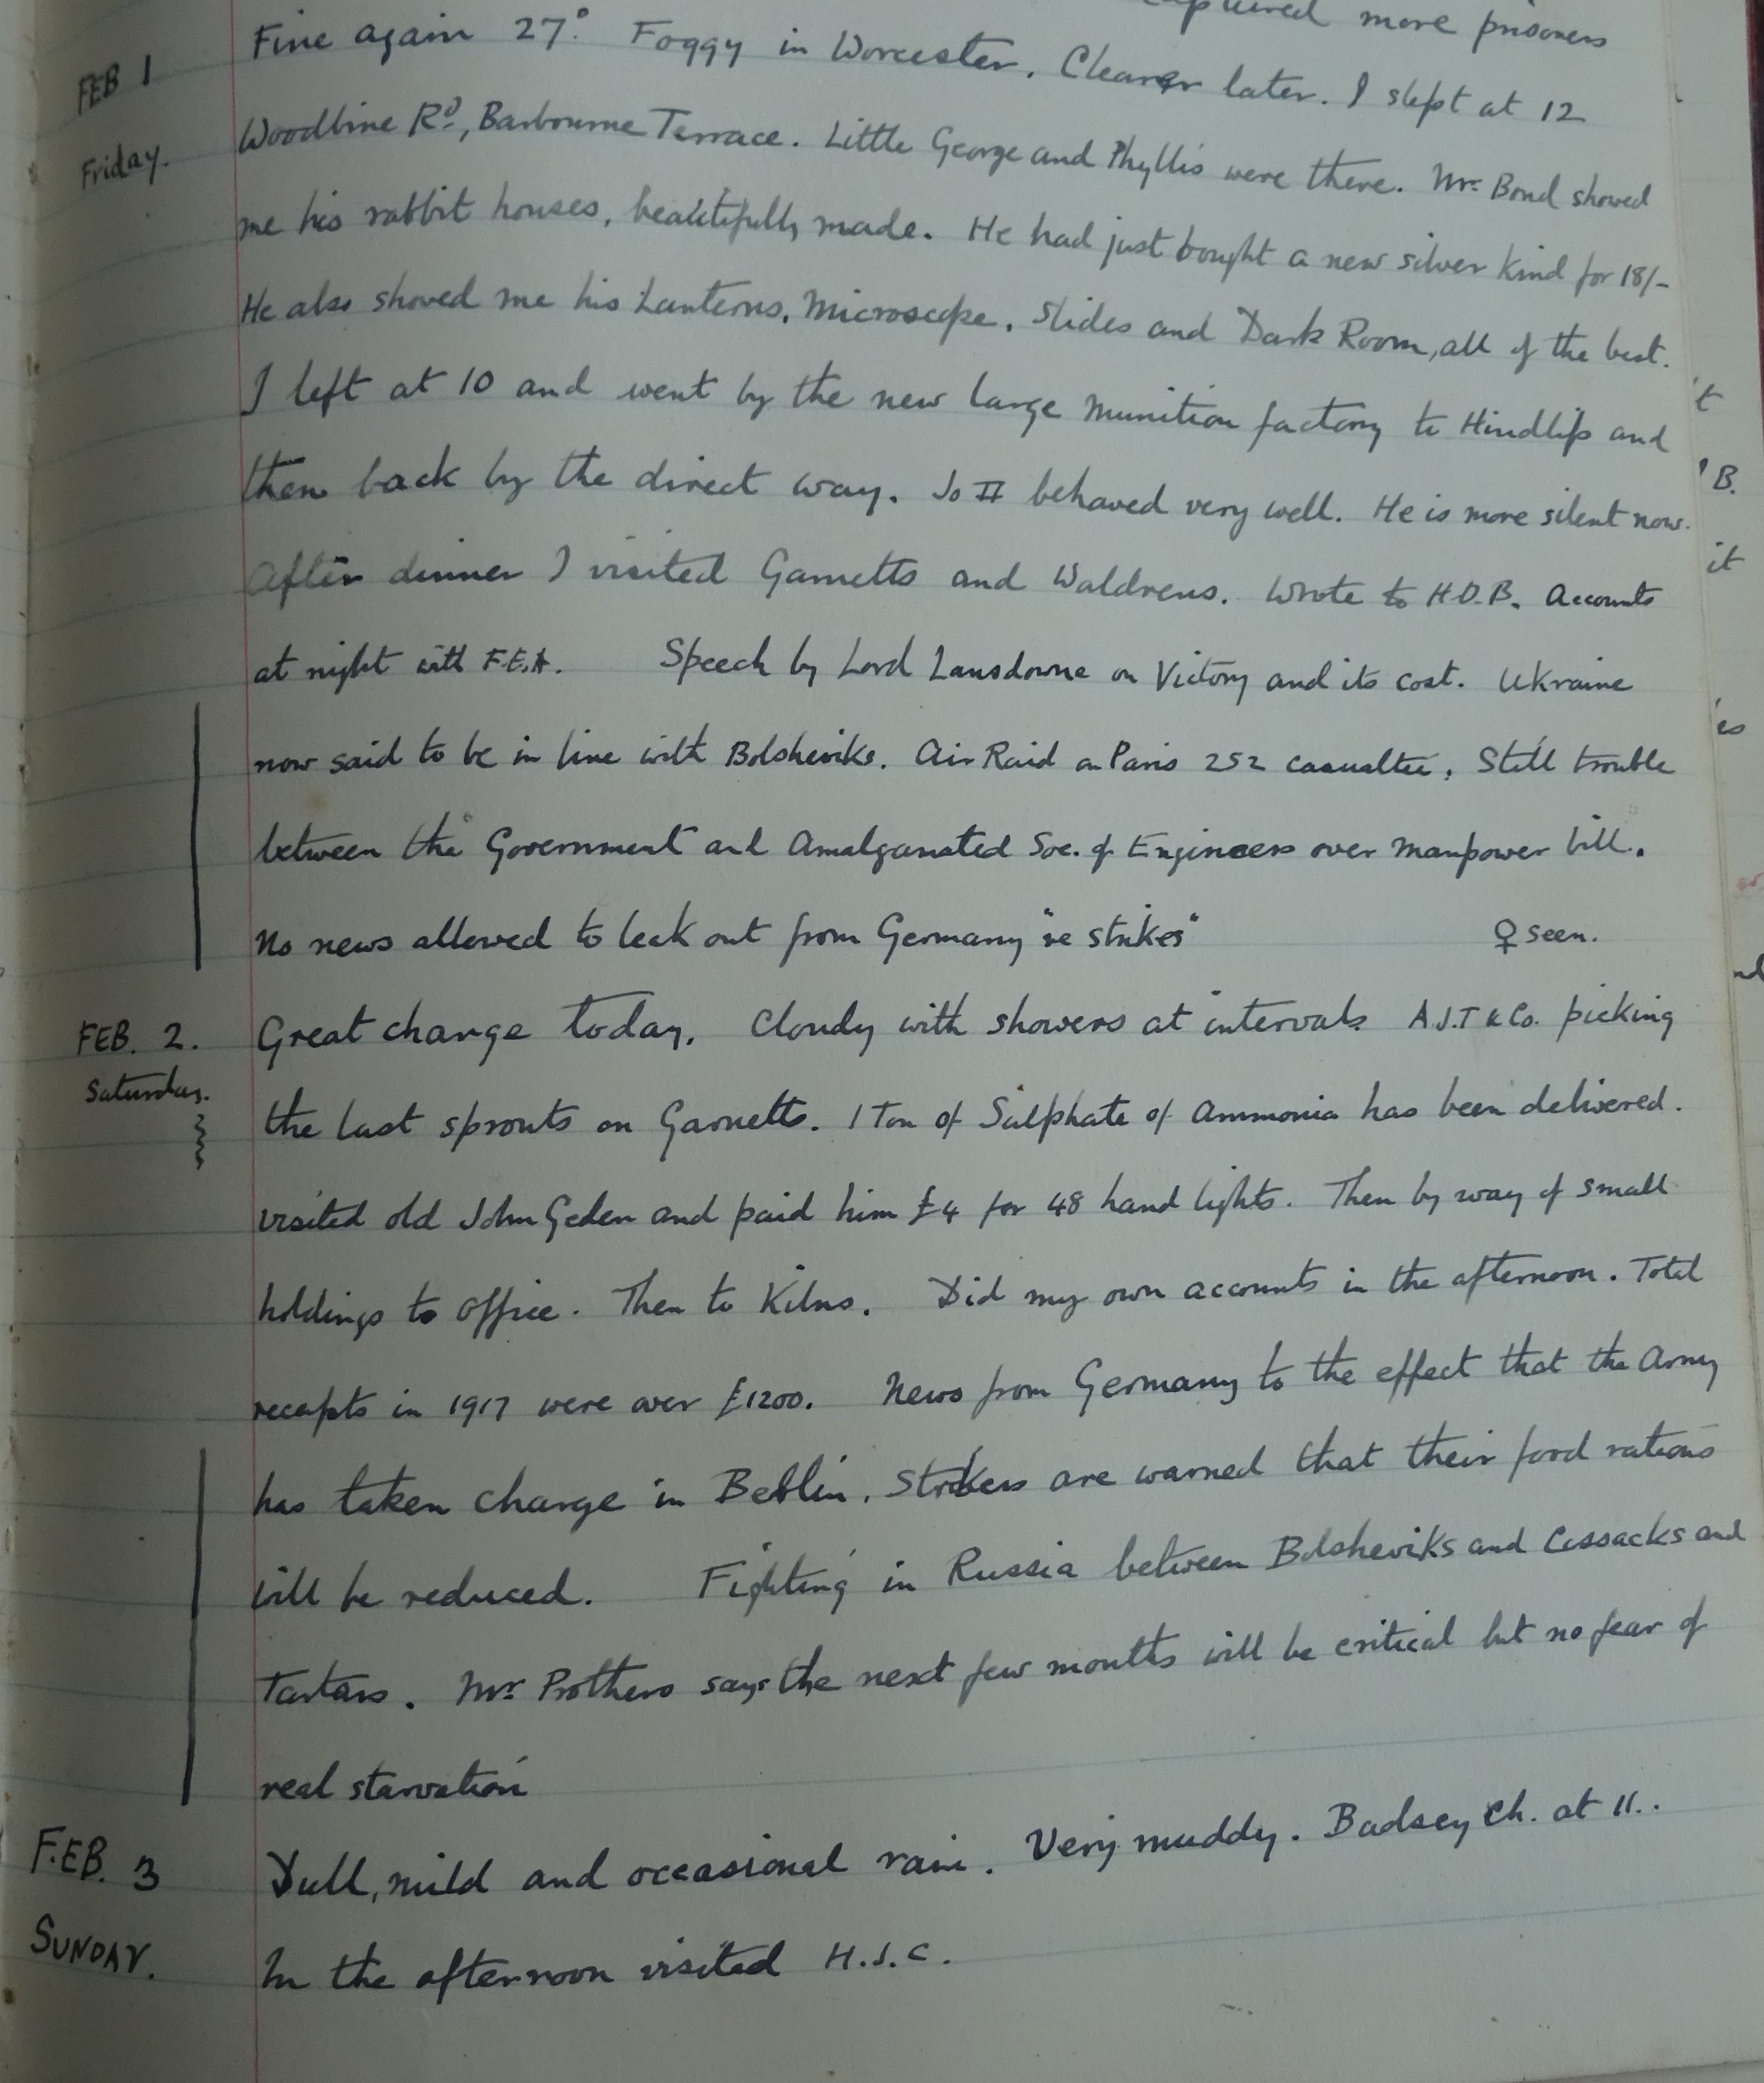 captured more prisoners
FEB 1
Friday.
Fine again 27°. Foggy in Worcester. Clearer later. I slept at 12
Woodbine Rd, Barbourne Terrace. Little George and Phyllis were there. Mr. Bond showed
me his rabbit houses, beautifully made. He had just bought a new silver kind for 18/-
He also showed me his Lanterns, Microscope, Slides and Dark Room, all of the best.
I left at 10 and went by the new large munition factory to Hindlip and
then back by the direct way. Jo II behaved very well. He is more silent now.
After dinner I visited Garnetts and Waldrens. Wrote to H.D.B. Accounts
at night with F.E.A. Speech by Lord Lansdowne on Victory and its cost. Ukraine
now said to be in line with Bolsheviks. Air Raid on Paris 252 casualties. Still trouble
between the Government and Amalgamated Soc. of Engineers over manpower bill.
No news allowed to leak out from Germany "re strikes" ♀ seen.
FEB. 2.
Saturday.
Great change today. Cloudy with showers at intervals A.J.T & Co. picking
the last sprouts on Garnetts. 1 Ton of Sulphate of Ammonia has been delivered.
visited old John Geden and paid him £4 for 48 hand lights. Then by way of small
holdings to office. Then to Kilns. Did my own accounts in the afternoon. Total
receipts in 1917 were over £1200. News from Germany to the effect that the Army
has taken charge in Berlin. Strikers are warned that their food rations
will be reduced. Fighting in Russia between Bolsheviks and Cossacks and
Tartars. Mr Prothero says the next few months will be critical but no fear of
real starvation
FEB. 3
SUNDAY.
Dull, mild and occasional rain. Very muddy. Badsey Ch. at 11..
In the afternoon visited H.J.C.
't
'B.
it
es